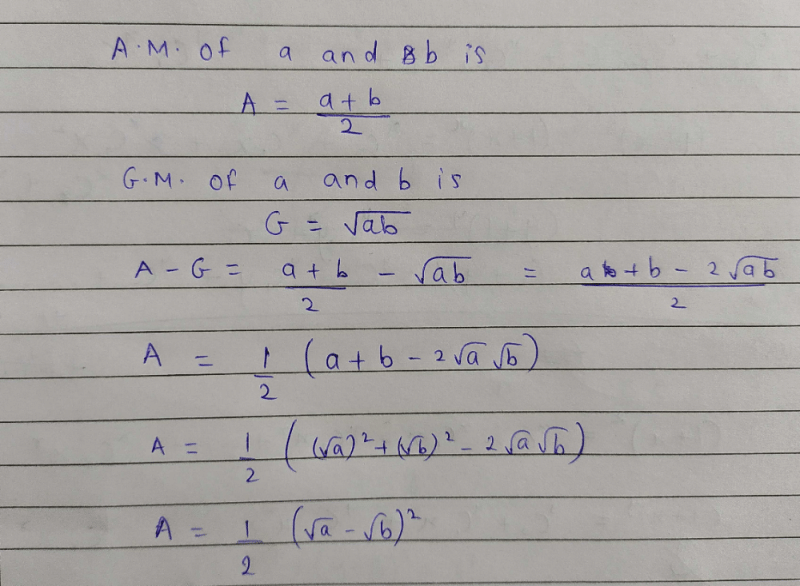 A.M. of a and b is
A = (a + b)/2
G.M. of a and b is
G = √(ab)
A - G = (a + b)/2 - √(ab) = (a + b - 2√(ab))/2
A = 1/2 (a + b - 2√a √b)
A = 1/2 ((√a)² + (√b)² - 2√a√b)
A = 1/2 (√a - √b)²